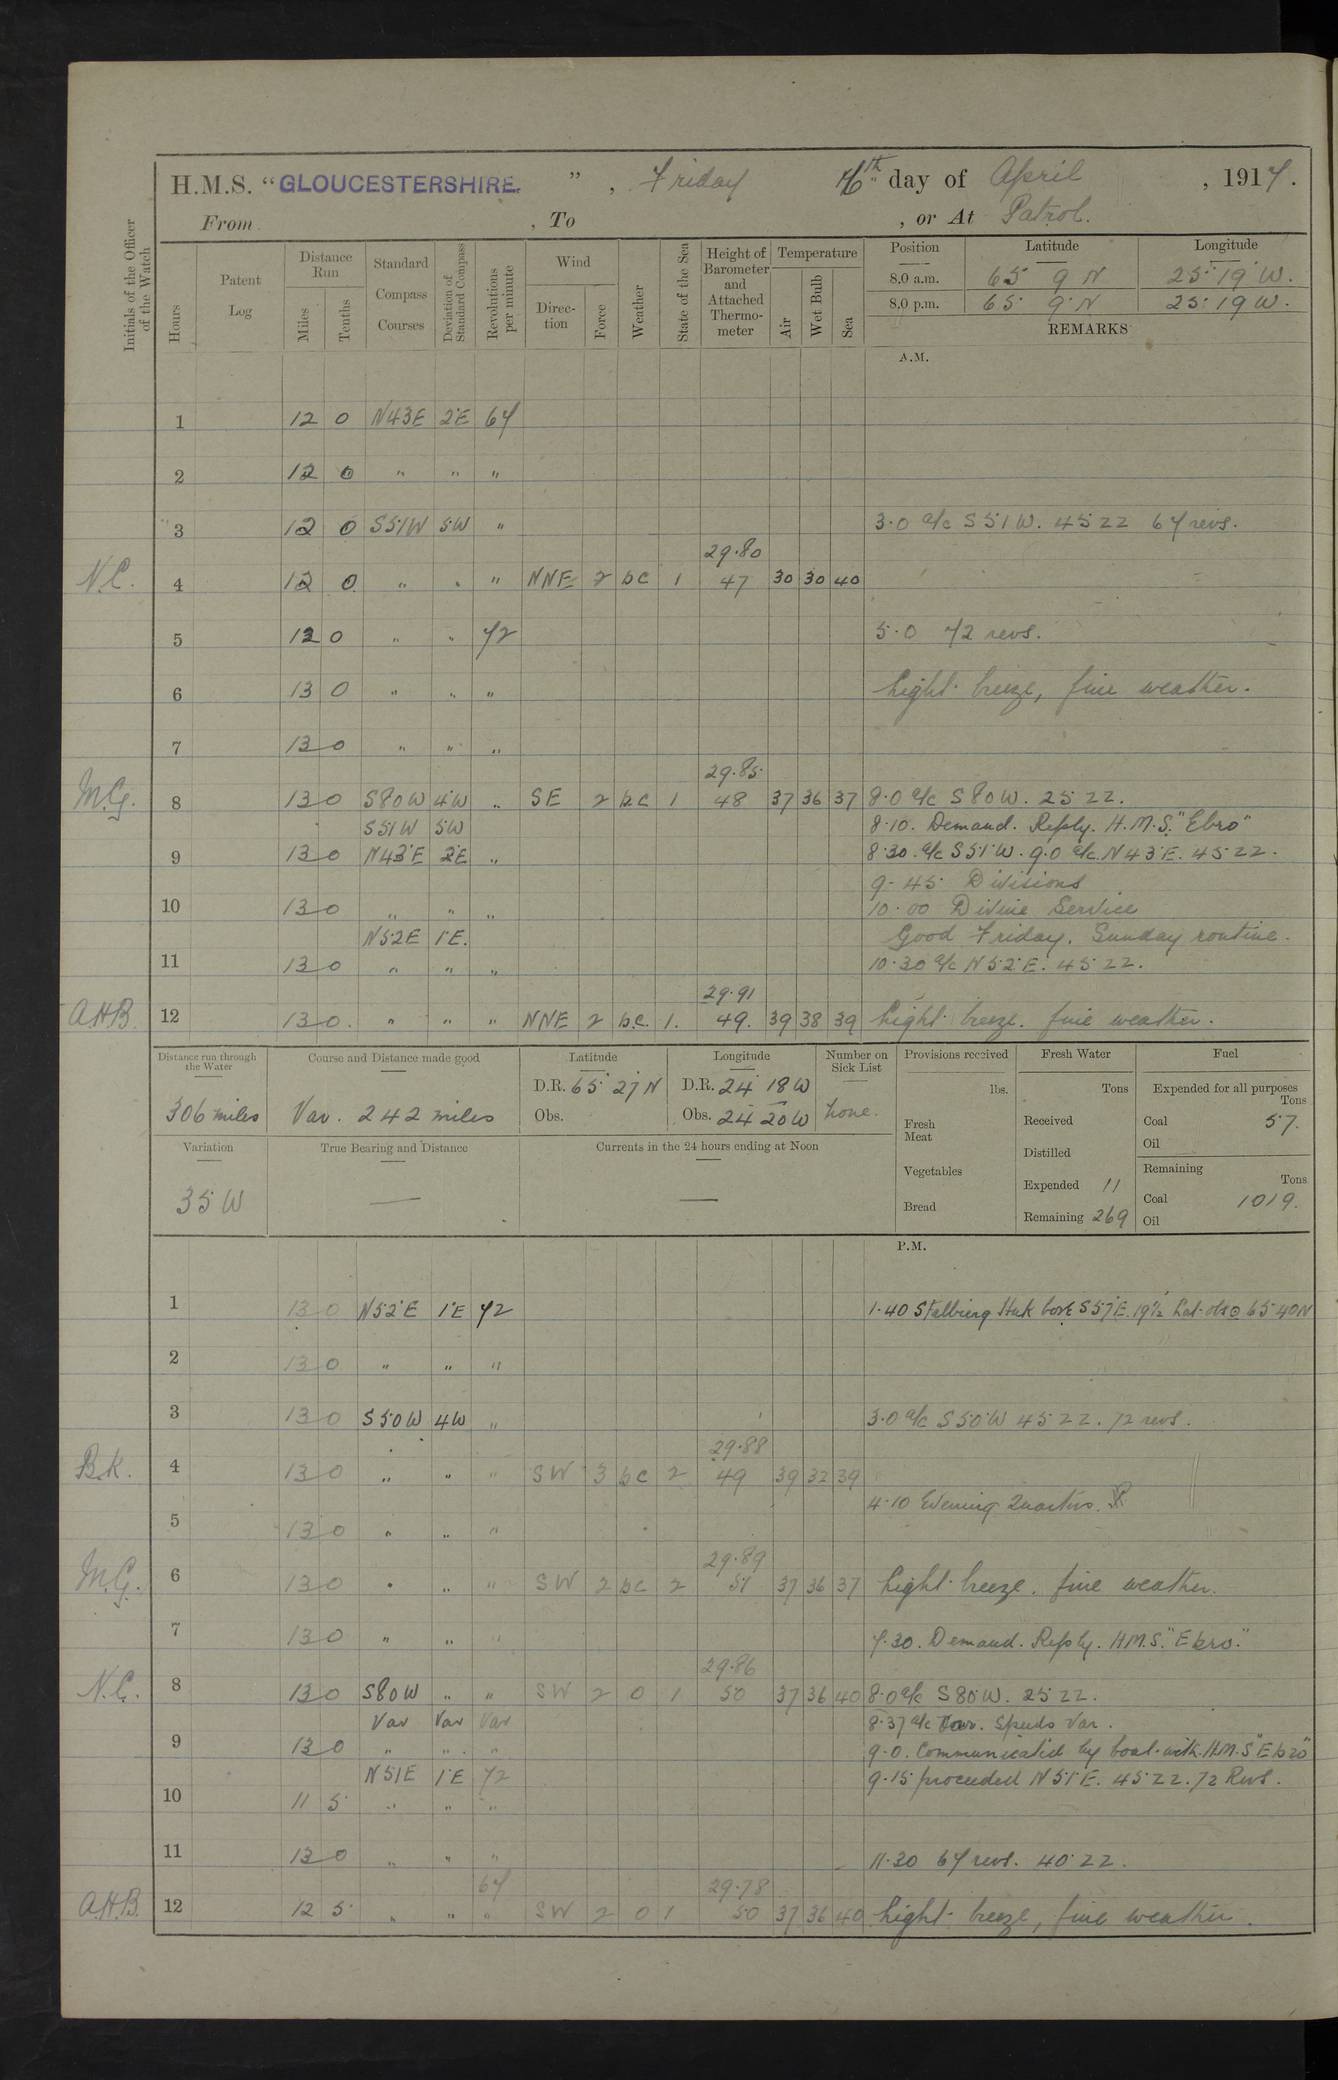 H.M.S. "GLOUCESTERSHIRE. ", Friday 6th day of April, 1917.
From , To , or At Patrol.
Initials of the Officer of the Watch
Hours
Patent Log
Distance Run
Miles
Tenths
Standard Compass Courses
Deviation of Standard Compass
Revolutions per minute
Wind
Direction
Force
Weather
State of the Sea
Height of Barometer and Attached Thermometer
Temperature
Air
Wet Bulb
Sea
Position Latitude Longitude
8.0 a.m. 65° 9 N 25° 19' W.
8.0 p.m. 65 9 N 25 19 W.
REMARKS
A.M.
1 12 0 N43E 2°E 67
2 12 0 " " "
3 12 0 S51W 5W " 3.0 a/c S51W. 45 ZZ 67 revs.
29.80
N.C. 4 12 0 " " " NNE 2 bc 1 47 30 30 40
5 12 0 " " 72 5.0 72 revs.
6 13 0 " " " Light breeze, fine weather.
7 13 0 " " "
29.85
M.G. 8 13 0 S80W 4°W " SE 2 bc 1 48 37 36 37 8.0 a/c S80W. 25 ZZ.
S51W 5W 8.10. Demand. Reply. H.M.S. "Ebro"
9 13 0 N43°E 2°E " 8.30. a/c S51°W. 9.0 a/c N43°E. 45 ZZ.
9.45 Divisions
10 13 0 " " " 10.00 Divine Service
N52E 1°E. Good Friday. Sunday routine.
11 13 0 " " " 10.30 a/c N52°E. 45 ZZ.
29.91
A.H.B. 12 13 0. " " " NNE 2 b.c. 1. 49. 39 38 39 Light breeze. fine weather.
Distance run through the Water
306 miles
Course and Distance made good
Var. 242 miles
Latitude
D.R. 65° 27 N
Obs.
Longitude
D.R. 24° 18 W
Obs. 24 20 W
Number on Sick List
None.
Variation
35 W
True Bearing and Distance
—
Currents in the 24 hours ending at Noon
—
Provisions received
lbs.
Fresh Meat
Vegetables
Bread
Fresh Water
Tons
Received
Distilled
Expended 11
Remaining 269
Fuel
Expended for all purposes
Tons
Coal 57.
Oil
Remaining
Tons
Coal 1019.
Oil
P.M.
1 13 0 N52°E 1°E 72 1.40 Stalbierg Huk bore S57°E. 19½' Lat. obs 65° 40 N
2 13 0 " " "
3 13 0 S50W 4W " 3.0 a/c S50°W 45 ZZ. 72 revs.
29.88
B.K. 4 13 0 " " " SW 3 bc 2 49 39 32 39
4.10 Evening Quarters.
5 13 0 " " "
29.89
M.G. 6 13 0 " " " SW 2 bc 2 51 37 36 37 Light breeze. fine weather.
7 13 0 " " " 7.30. Demand. Reply. H.M.S. "Ebro."
29.86
N.C. 8 13 0 S80W " " SW 2 0 1 50 37 36 40 8.0 a/c S80°W. 25 ZZ.
Var Var Var 8.37 a/c Var. Speeds Var.
9 13 0 " " " 9.0. Communicated by boat with H.M.S "Ebro"
N51E 1°E 72 9.15 proceeded N51°E. 45 ZZ. 72 Revs.
10 11 5 " " "
11 13 0 " " " 11.30 67 revs. 40 ZZ.
67 29.78
A.H.B. 12 12 5 " " " SW 2 0 1 50 37 36 40 Light breeze, fine weather.